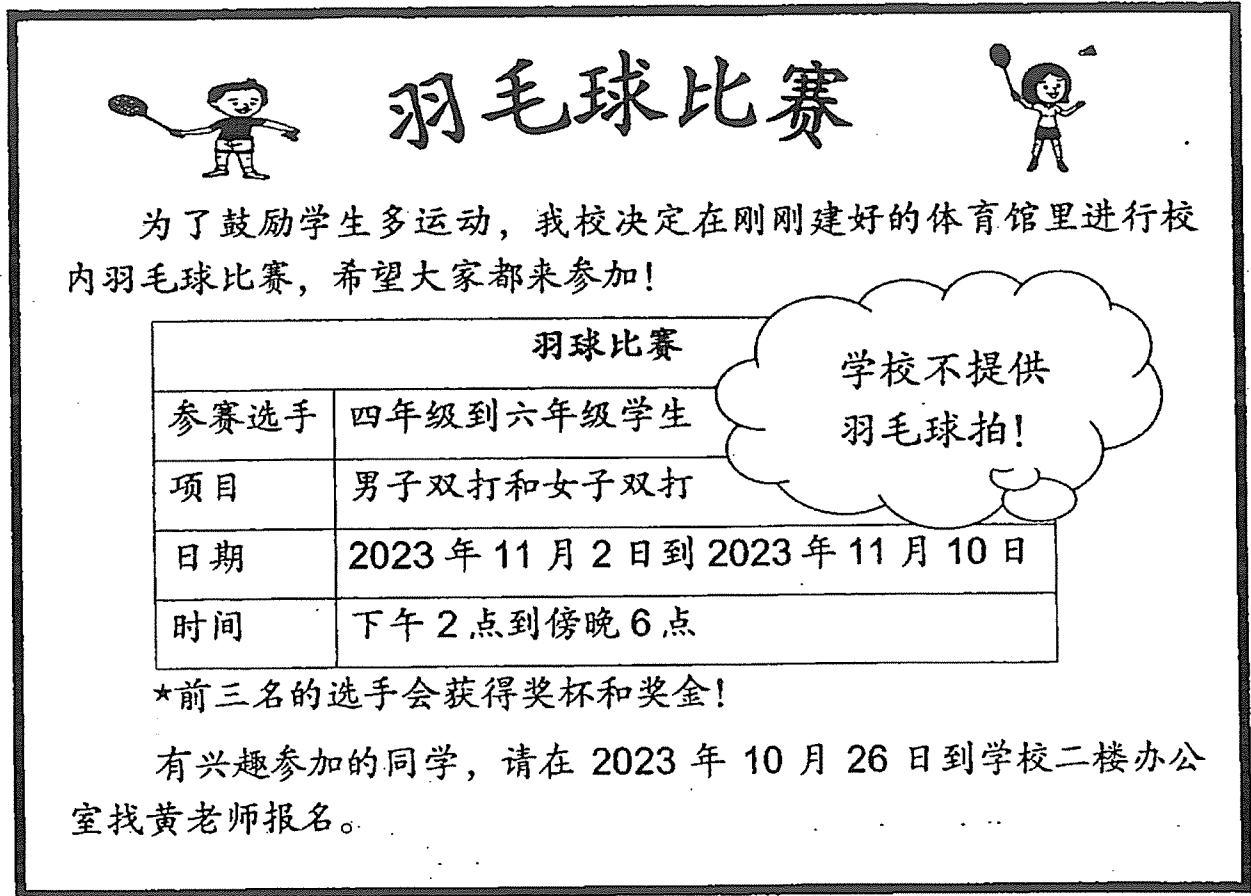 羽毛球比赛
为了鼓励学生多运动，我校决定在刚刚建好的体育馆里进行校
内羽毛球比赛，希望大家都来参加！
羽球比赛
学校不提供
羽毛球拍！
参赛选手 四年级到六年级学生
项目 男子双打和女子双打
日期 2023 年 11 月 2 日到 2023 年 11 月 10 日
时间 下午 2 点到傍晚 6 点
★前三名的选手会获得奖杯和奖金！
有兴趣参加的同学，请在 2023 年 10 月 26 日到学校二楼办公
室找黄老师报名。